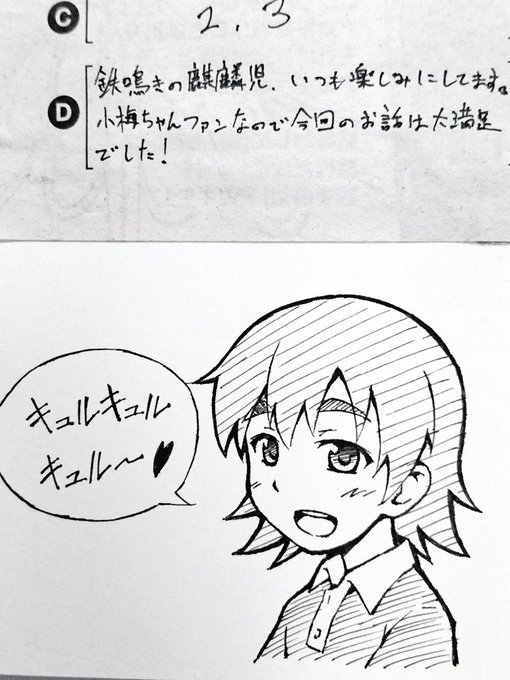 C
2. 3
D
鉄鳴きの麒麟児、いつも楽しみにしてます。
小梅ちゃんファンなので今回のお話は大満足
でした！
キュルキュル
キュル〜♥